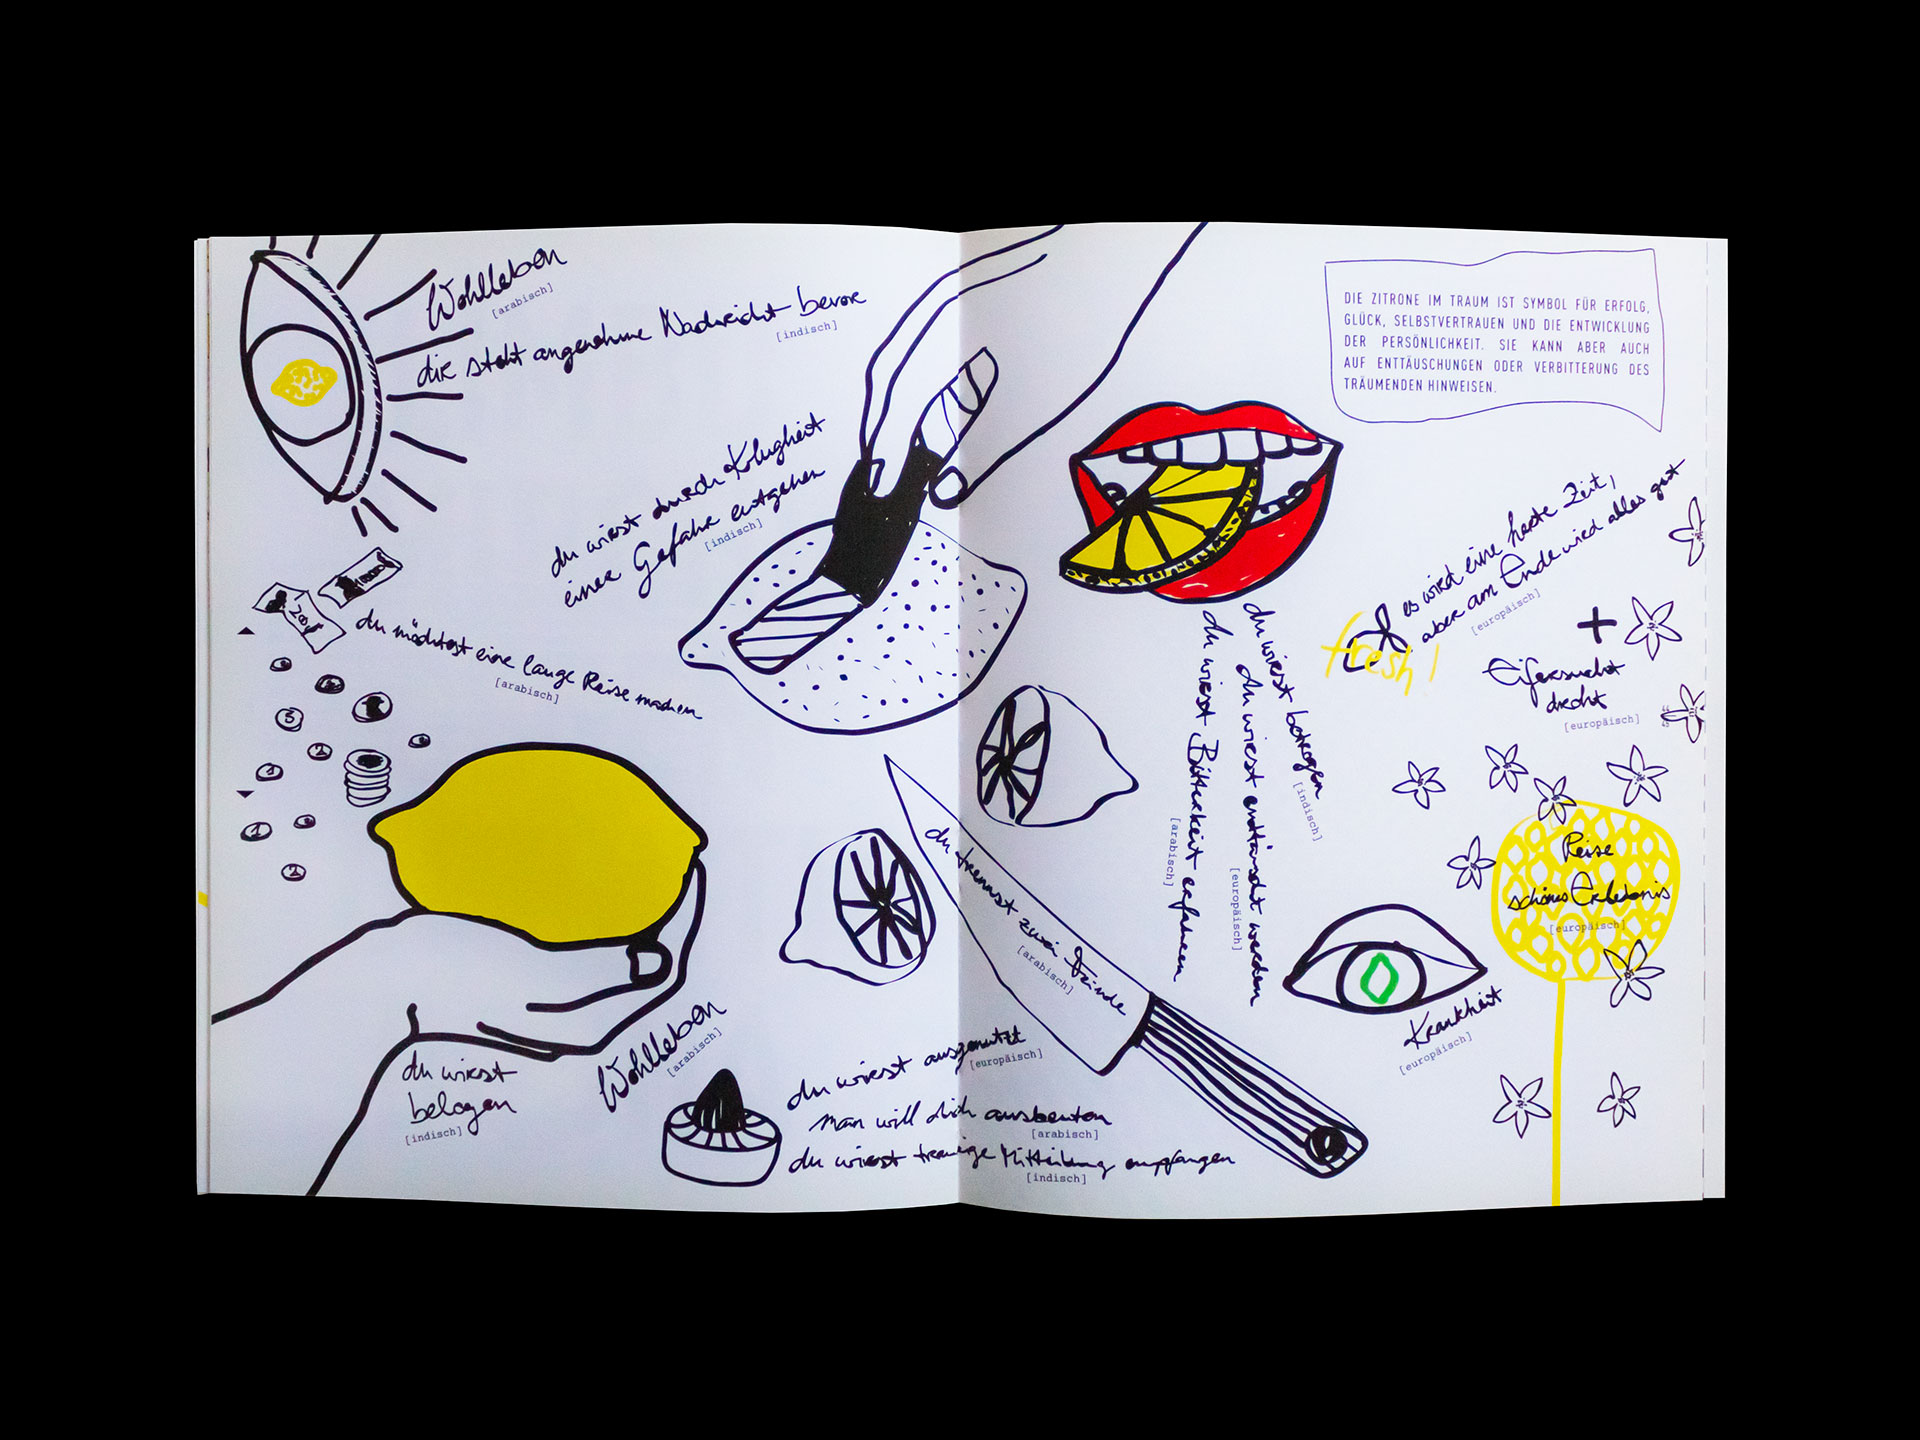 Wohlleben
[arabisch]
dir steht angenehme Nachricht bevor
[indisch]
du wirst durch Klugheit
einer Gefahr entgehen
[indisch]
200
1000
du möchtest eine lange Reise machen
[arabisch]
1
3
2
1
1
2
du wirst
belogen
[indisch]
Wohlleben
[arabisch]
du trennst zwei Feinde
[arabisch]
du wirst ausgenutzt
[europäisch]
man will dich ausbeuten
[arabisch]
du wirst traurige Mitteilung empfangen
[indisch]
DIE ZITRONE IM TRAUM IST SYMBOL FÜR ERFOLG,
GLÜCK, SELBSTVERTRAUEN UND DIE ENTWICKLUNG
DER PERSÖNLICHKEIT. SIE KANN ABER AUCH
AUF ENTTÄUSCHUNGEN ODER VERBITTERUNG DES
TRÄUMENDEN HINWEISEN.
du wirst betrogen
[indisch]
du wirst enttäuscht werden
[europäisch]
du wirst Bitterkeit erfahren
[arabisch]
fresh!
es wird eine harte Zeit,
aber am Ende wird alles gut
[europäisch]
+
Eifersucht
droht
[europäisch]
44
45
Reise
schönes Erlebnis
[europäisch]
Krankheit
[europäisch]